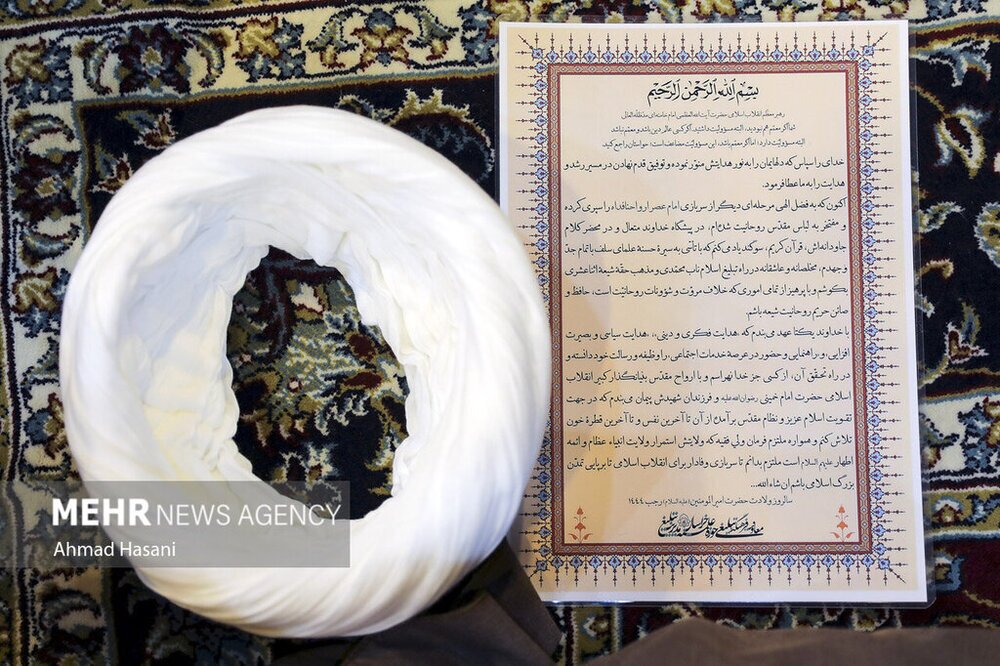 بسم الله الرحمن الرحیم
رهبر معظم انقلاب اسلامی حضرت آیت الله العظمی امام خامنه‌ای مدظله‌العالی
شما اگر معمم هم نبودید، البته مسؤولیت داشتید. اگر کسی عالم دین باشد و معمم نباشد
البته مسؤولیت دارد؛ اما اگر معمم باشد، این مسؤولیت مضاعف است؛ حواستان را جمع کنید
خدای را سپاس که دلهایمان را به نور هدایتش منوّر نموده و توفیق قدم نهادن در مسیر رشد و
هدایت را به ما عطا فرمود.
اکنون که به فضل الهی مرحله‌ای دیگر از سربازی امام عصر ارواحنا فداه را سپری کرده
و مفتخر به لباس مقدّس روحانیت شده‌ام، در پیشگاه خداوند متعال و در محضر کلام
جاودانه‌اش، قرآن کریم، سوگند یاد می‌کنم که با تأسّی به سیرهٔ حسنهٔ علمای سلف با تمام جدّ
و جهدم، مخلصانه و عاشقانه در راه تبلیغ اسلام ناب محمّدی و مذهب حقّهٔ شیعهٔ اثنا عشری
بکوشم و با پرهیز از تمامی اموری که خلاف مروّت و شؤونات روحانیّت است، حافظ و
صائن حریم روحانیت شیعه باشم.
با خداوند یکتا عهد می‌بندم که ،هدایت فکری و دینی،، هدایت سیاسی و بصیرت
افزایی، و ،راهنمایی و حضور در عرصهٔ خدمات اجتماعی، را وظیفه و رسالت خود دانسته و
در راه تحقق آن، از کسی جز خدا نهراسم و با ارواح مقدّس بنیانگذار کبیر انقلاب
اسلامی حضرت امام خمینی رضوان الله علیه و فرزندان شهیدش پیمان می‌بندم که در جهت
تقویت اسلام عزیز و نظام مقدّس برآمده از آن تا آخرین نفس و تا آخرین قطرهٔ خون
تلاش کنم و همواره ملتزم فرمان ولی فقیه که ولایتش استمرار ولایت انبیاء عظام و ائمه
اطهار علیهم السلام است ملتزم بدانم تا سربازی وفادار برای انقلاب اسلامی تا برپایی تمدّن
بزرگ اسلامی باشم ان شاء الله...
سالروز ولادت حضرت امیرالمومنین (علیه السلام) رجب ۱۴۴۴
MEHR NEWS AGENCY
Ahmad Hasani